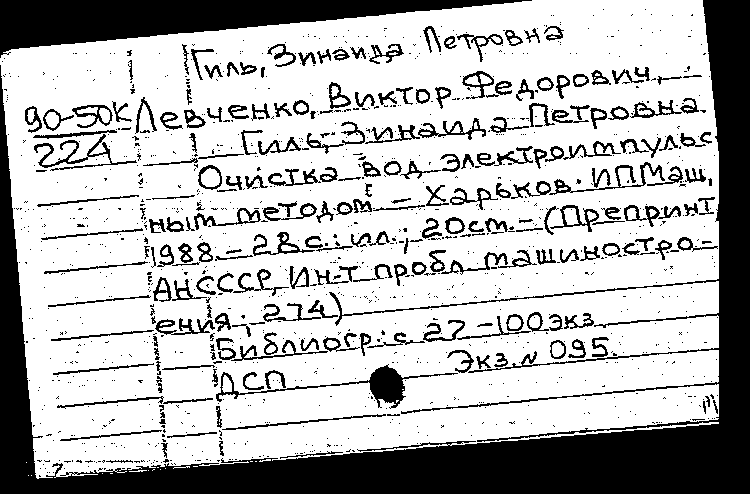 Гиль, Зинаида Петровна
90-50К Левченко, Виктор Федорович,
224 Гиль, Зинаида Петровна.
Очистка вод электроимпульс-
ным методом - Харьков: ИПМаш,
1988. - 28с.: ил.; 20 см. - (Препринт,
АНСССР, Ин-т пробл. машиностро-
ения; 274)
Библиогр.: с 27 - 100 экз.
ДСП Экз. N 095.